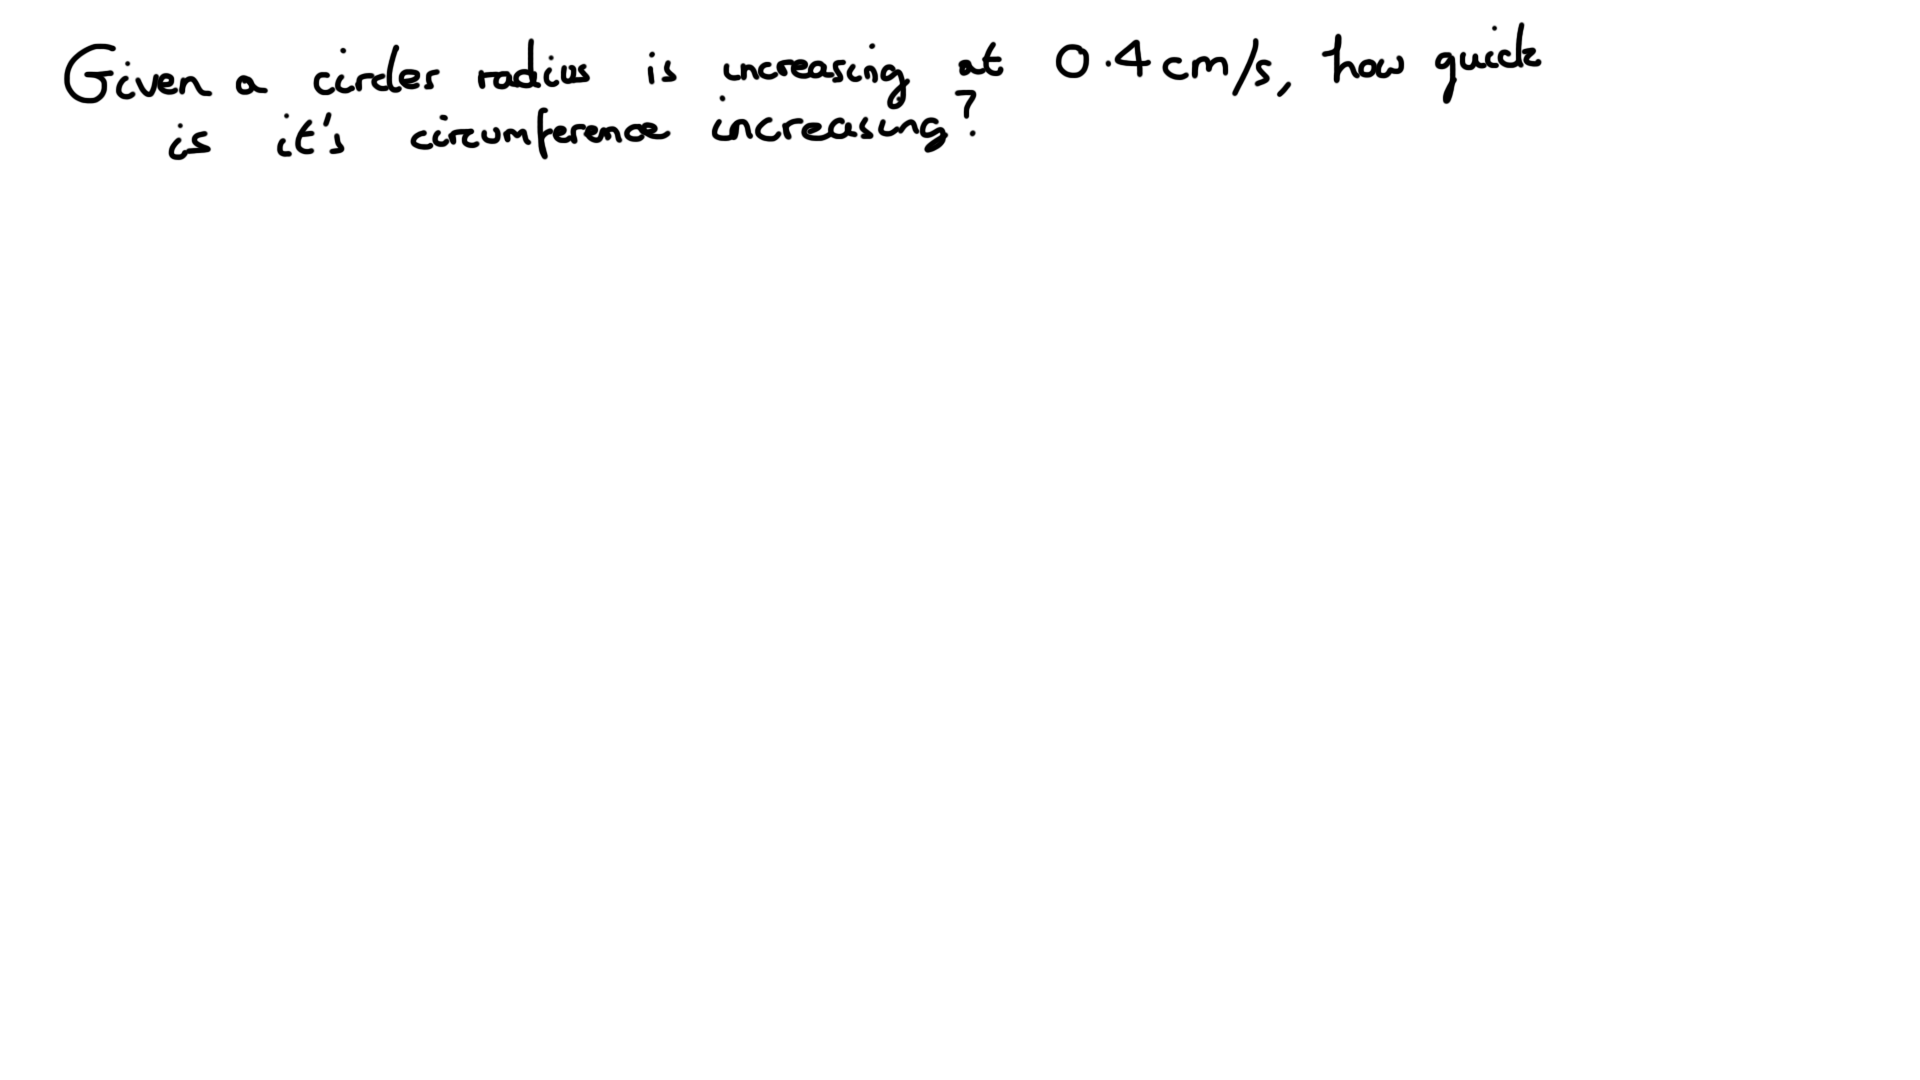 Given a circles radius is increasing at 0.4cm/s, how quick
is it's circumference increasing?